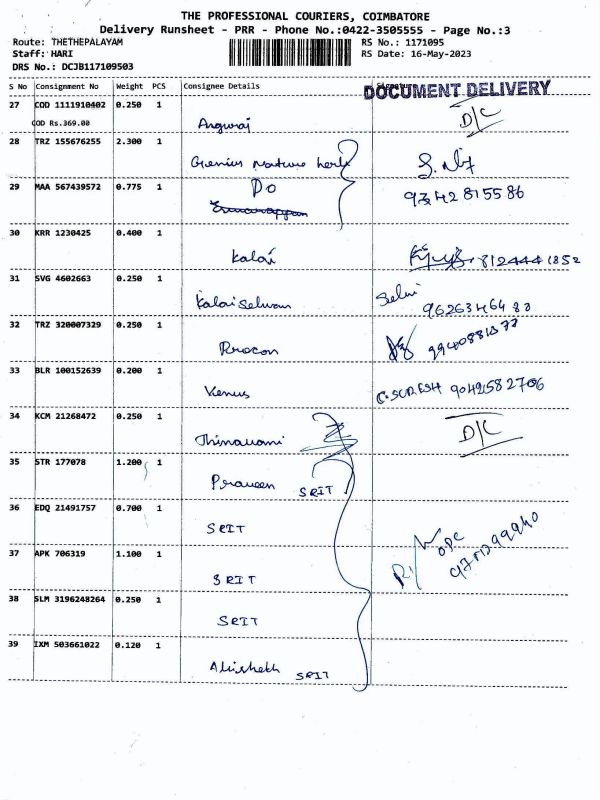 THE PROFESSIONAL COURIERS, COIMBATORE
Delivery Runsheet - PRR - Phone No.:0422-3505555 - Page No.:3
Route: THETHEPALAYAM RS No.: 1171095
Staff: HARI RS Date: 16-May-2023
DRS No.: DCJB117109503
S No Consignment No Weight PCS Consignee Details
DOCUMENT DELIVERY
27 COD 1111910402 0.250 1 D/C
COD Rs.369.00
28 TRZ 155676255 2.300 1
Genius Nature herb
29 MAA 567439572 0.775 1 Do 9342815586
30 KRR 1230425 0.400 1
Kalai 8124441852
31 SVG 4602663 0.250 1 Selvi
Kalaiselvan 9626346488
32 TRZ 320007329 0.250 1
Procon
33 BLR 100152639 0.200 1
Venus C.SURESH 9042582706
34 KCM 21268472 0.250 1 D/C
35 STR 177078 1.200 1
Praveen SRIT
36 EDQ 21491757 0.700 1
SRIT
37 APK 706319 1.100 1
SRIT
38 SLM 3196248264 0.250 1
SRIT
39 IXM 503661022 0.120 1
Abishekh SRIT